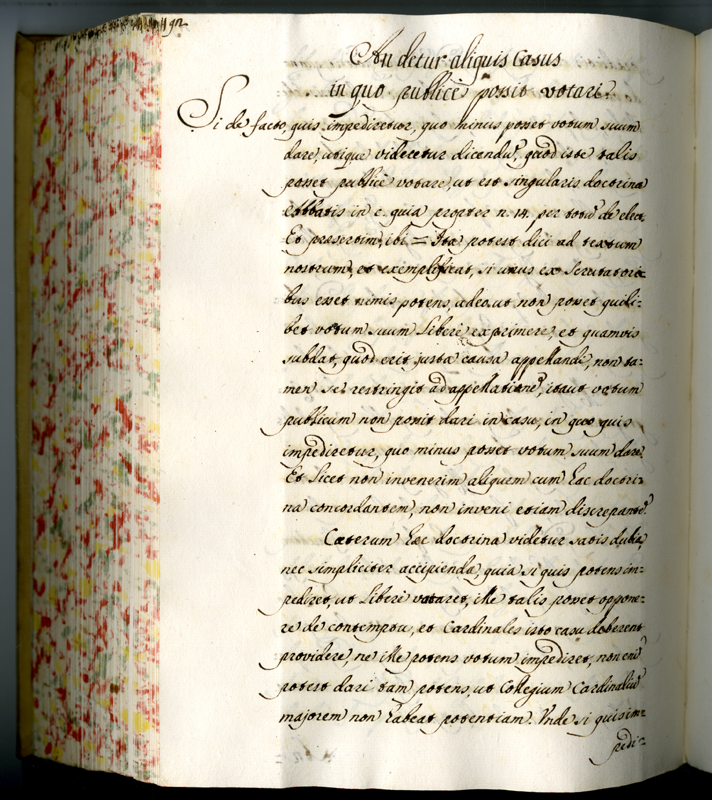 An detur aliquis casus
in quo publicè possit votari?
Si de facto, quis impediretur, quo minus posset votum suum
dare, utique videretur dicendũ, quod iste talis
posset publicè votare, ut est singularis doctrina
Abbatis in c. quia propter n. 14. per totũ de elect.
Et præsertim, ibi = Ita potest dici ad textum
nostrum, et exemplificat, si unus ex Scrutatori=
bus esset nimis potens, adeo, ut non posset quili=
bet votum suum Liberè exprimere, et quamvis
subdat, quod erit justa causa appellandi, non ta=
men se restringit ad appellationẽ, itaut votum
publicum non possit dari in casu, in quo quis
impediretur, quo minus posset votum suum dare.
Et Licet non invenerim aliquem cum hac doctri=
na concordantem, non inveni etiam discrepantẽ.
Cæterum hæc doctrina videtur satis dubia,
nec simpliciter accipienda, quia si quis potens im=
pediret, ut Liberi votaret, ille talis posset oppone=
re de contemptu, et Cardinales isto casu deberent
providere, ne ille potens votum impediret, non enĩ
potest dari tam potens, ut Collegium Cardinaliũ
majorem non habeat potentiam. Unde si quis im=
pedi=